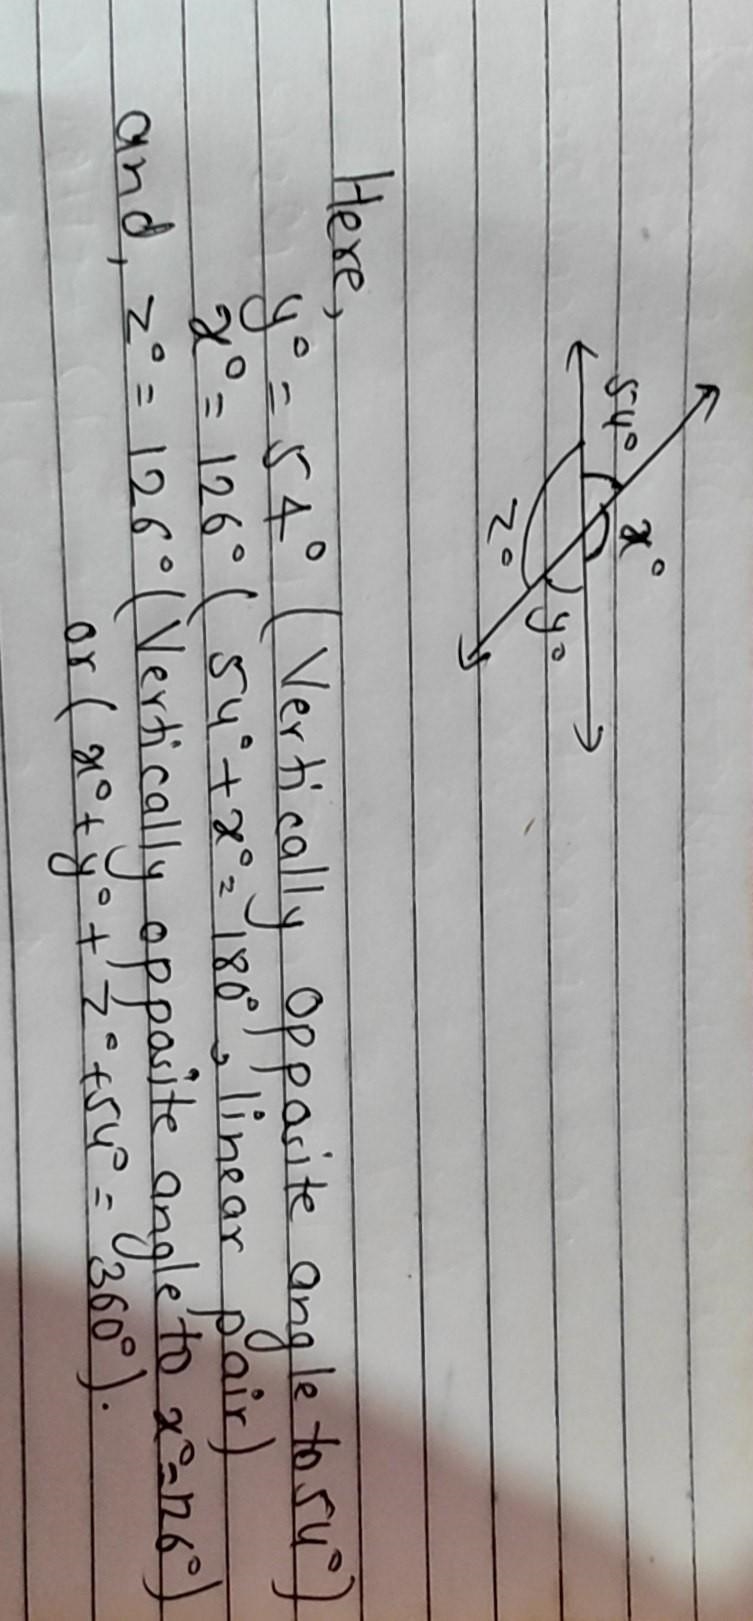 54°
x°
y°
z°
Here,
y° = 54° (Vertically opposite angle to 54°)
x° = 126° (54° + x° = 180°, linear pair)
and, z° = 126° (Vertically opposite angle to x° = 126°)
or (x° + y° + z° + 54° = 360°).